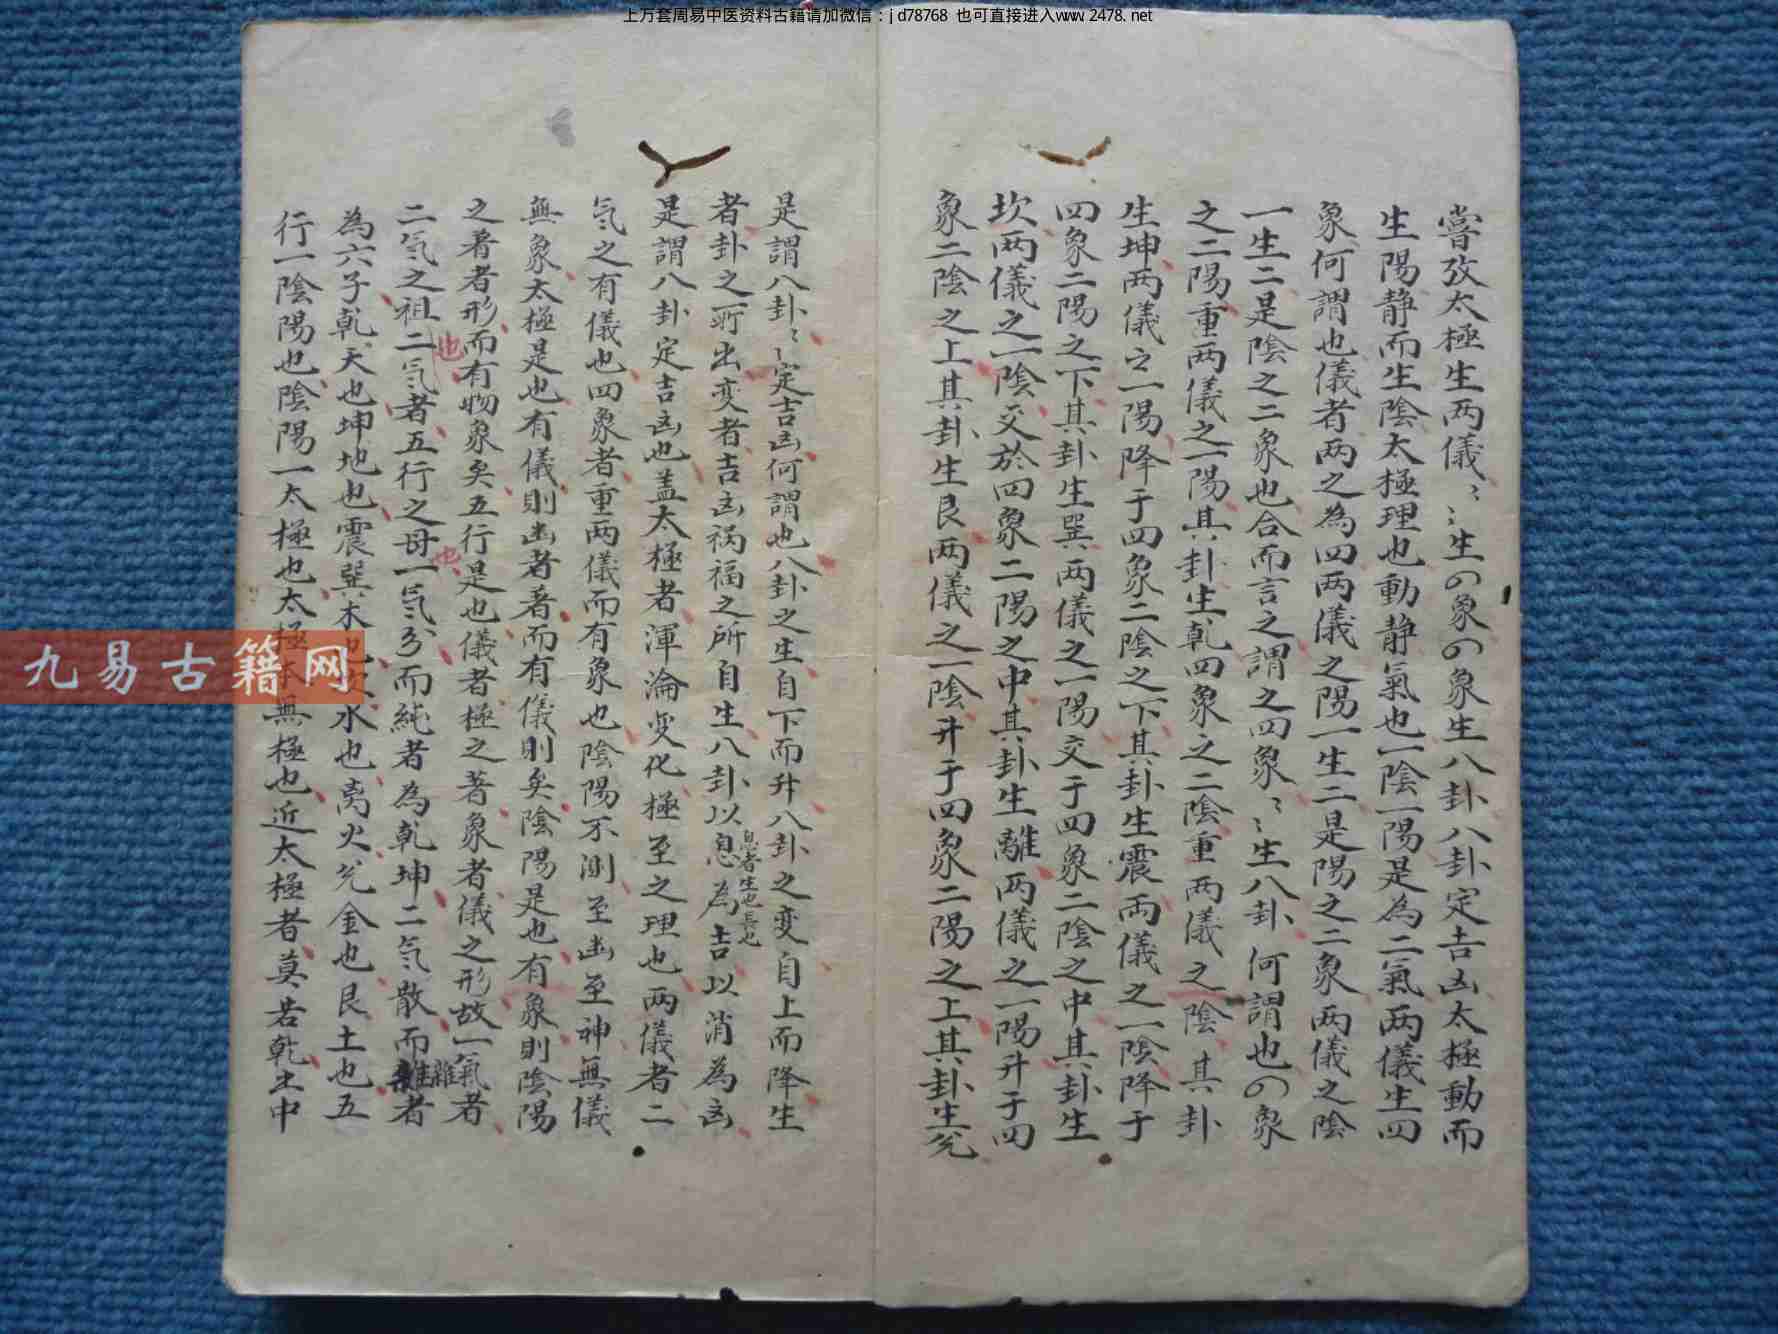 上万套周易中医资料古籍请加微信：jd78768 也可直接进入www.2478.net
嘗攷太極生两儀〻〻生の象の象生八卦八卦定吉凶太極動而
生陽静而生陰太極理也動静氣也一陰一陽是為二氣两儀生四
象何謂也儀者两之為四两儀之陽一生二是陽之二象两儀之陰
一生二是陰之二象也合而言之謂之四象〻〻生八卦何謂也の象
之二陽重两儀之一陽其卦生乾四象之二陰重两儀之陰其卦
生坤两儀之一陽降于四象二陰之下其卦生震两儀之一陰降于
四象二陽之下其卦生巽两儀之一陽交于四象二陰之中其卦生
坎两儀之一陰交於四象二陽之中其卦生離两儀之一陽升于四
象二陰之上其卦生艮两儀之一陰升于四象二陽之上其卦生兊
是謂八卦〻〻定吉凶何謂也八卦之生自下而升八卦之変自上而降生
者卦之所出変者吉凶祸福之所自生八卦以息為吉以消為凶
息者生也長也
是謂八卦定吉凶也盖太極者渾淪变化極至之理也两儀者二
氣之有儀也四象者重两儀而有象也陰陽不測至幽至神無儀
無象太極是也有儀則幽者著而有儀則矣陰陽是也有象則陰陽
之著者形而有物象矣五行是也儀者極之著象者儀之形故一氣者
二氣之祖二氣者五行之母一氣分而純者為乾坤二氣散而雜者
也
也
雜
為六子乾天也坤地也震巽木也坎水也离火兊金也艮土也五
行一陰陽也陰陽一太極也太極本無極也近太極者莫若乾土中
九易古籍网